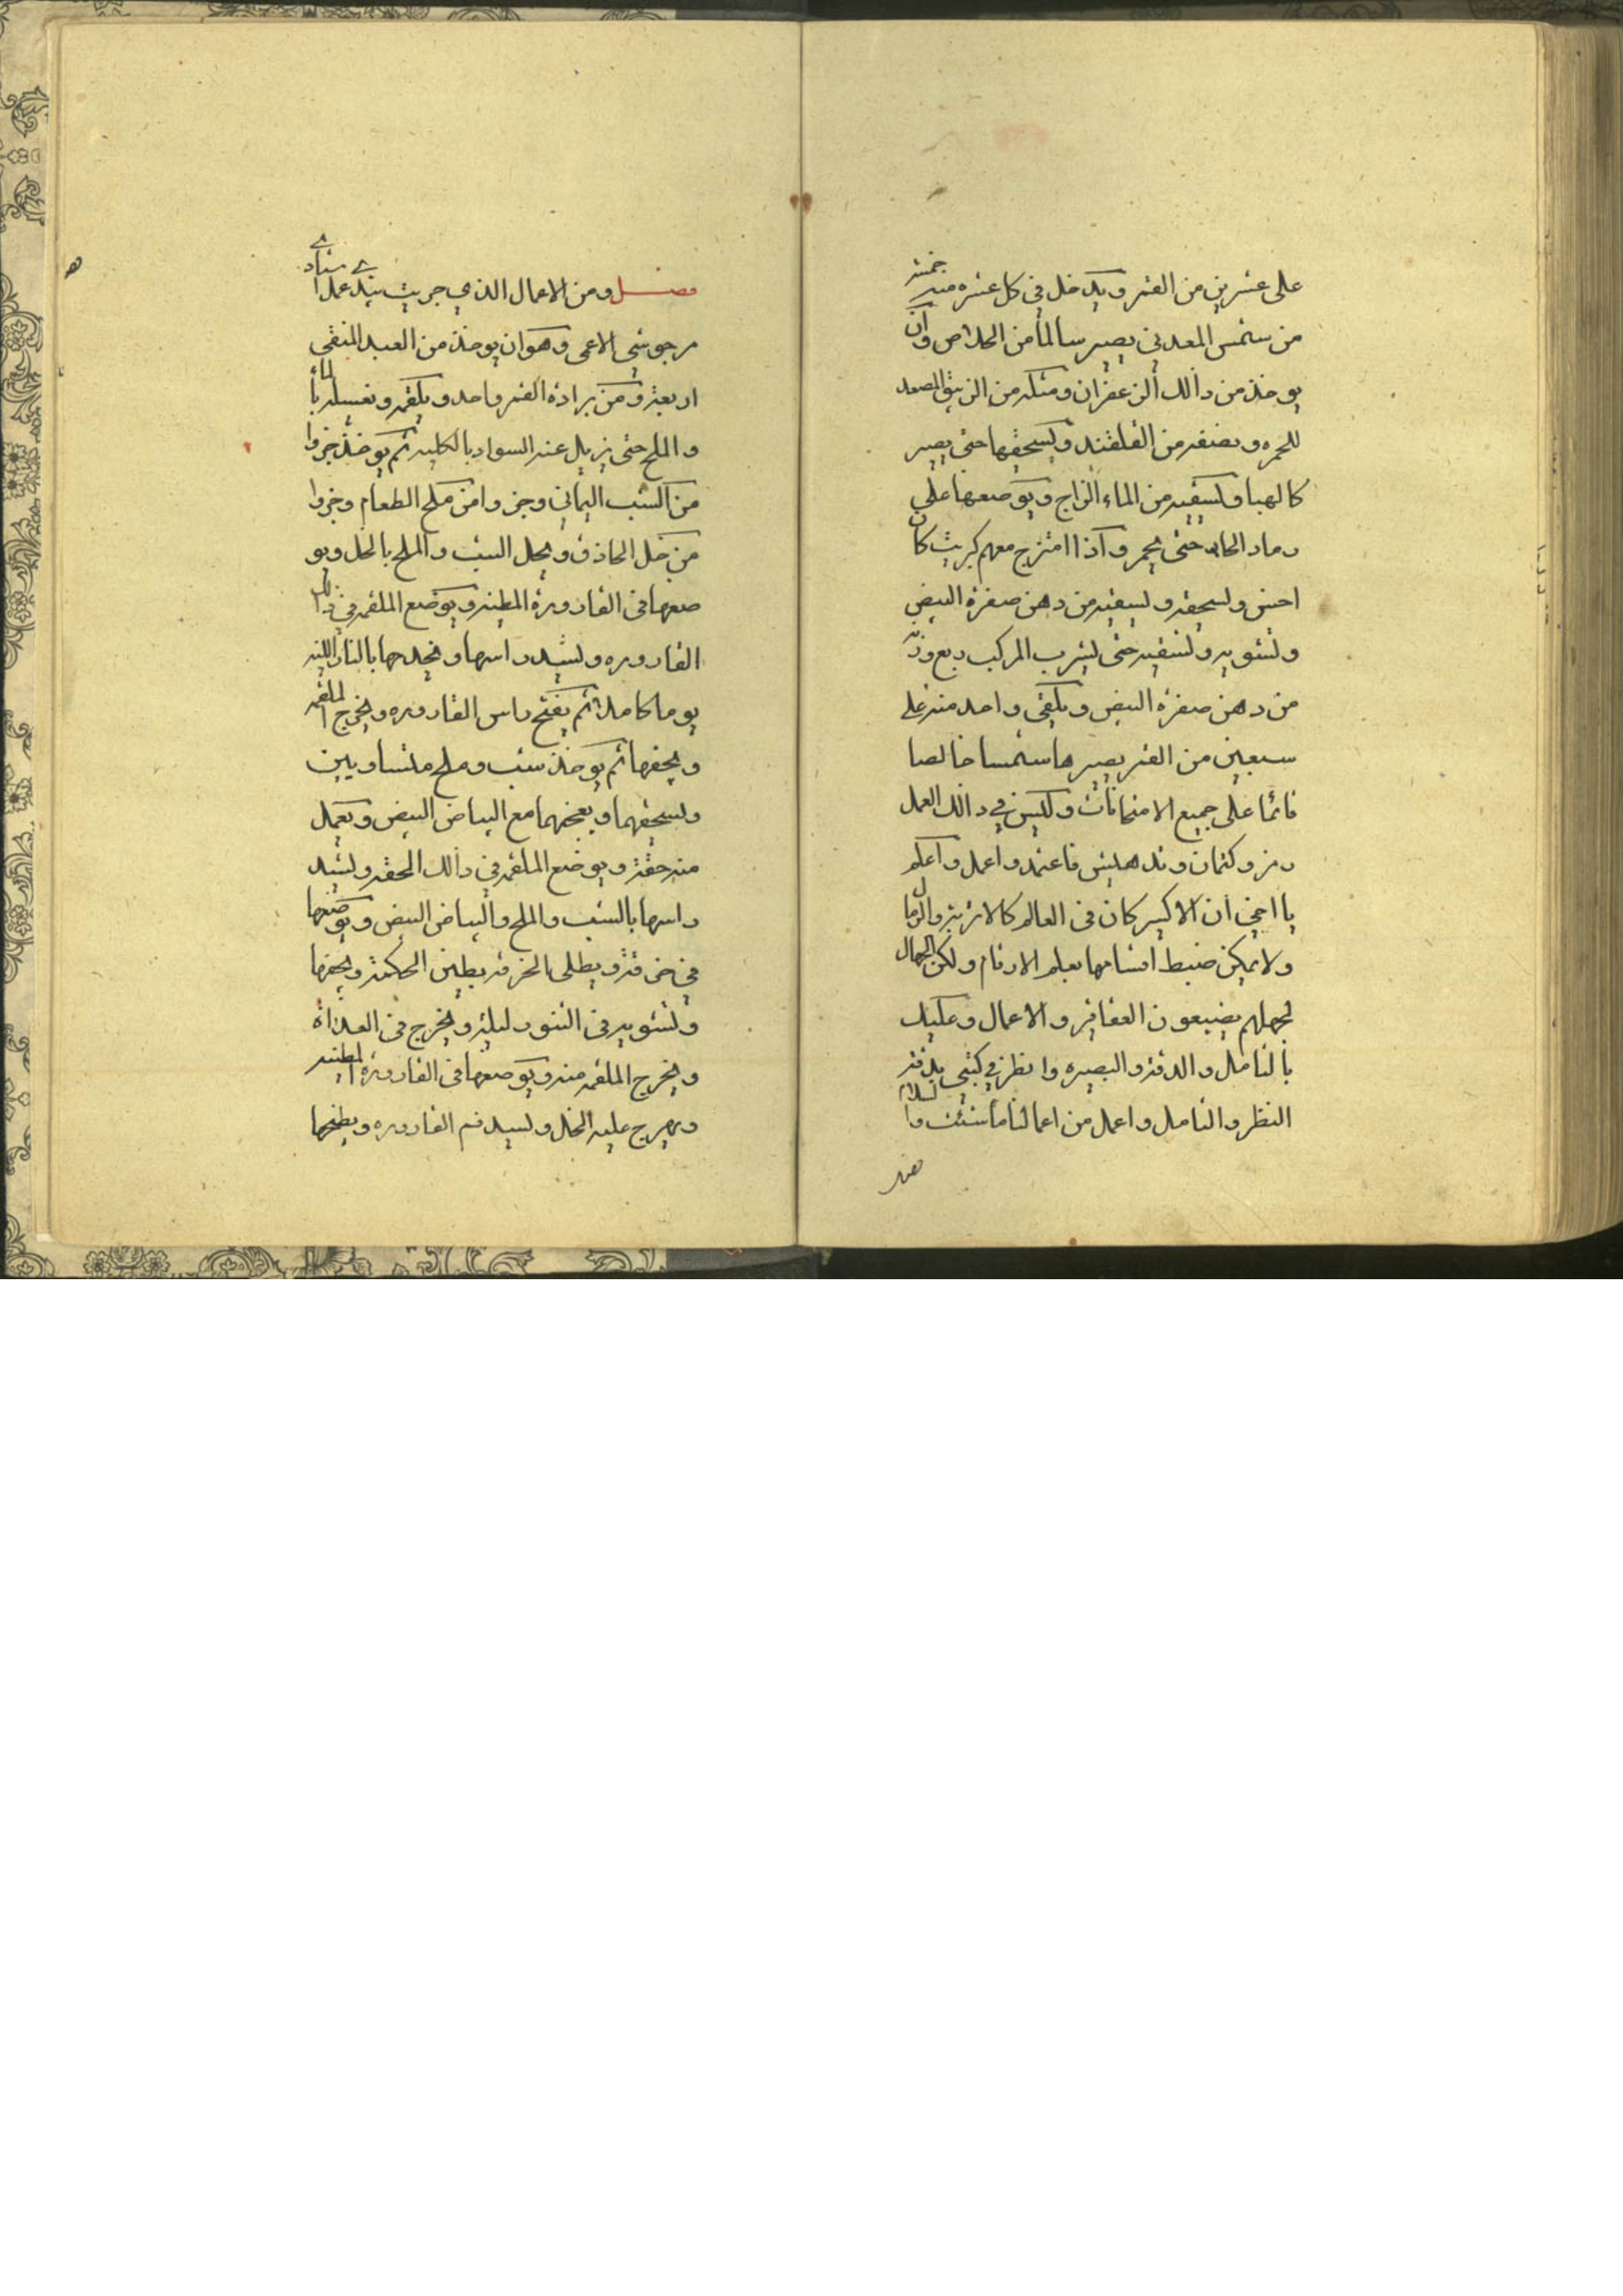 على عشرين من القمر ويدخل في كل عشره منه خمسة
من شمس المعدني يصير سالما من الخلاص وان
يوخذ من ذالك الزعفران ومثله من الزيبق المصعد
للحمره ونصفه من القلقند ويسحقها حتى يصير
كالهبا ويسقيه من الماء الزاج ويوضعها على
رماد الحار حتى يحمر واذا امتزج معهم كبريت كان
احسن ويسحقه ويسقيه من دهن صفرة البيض
ويشويه ويسقيه حتى يشرب المركب ربع وزنه
من دهن صفرة البيض ويلقى واحد منه على
سبعين من القمر يصيرها شمسا خالصا
قائما على جميع الامتحانات وليس في ذالك العمل
رمز وكتمان وتدهليس فاعتمد واعمل واعلم
يا اخي ان الاكسير كان في العالم كالاتربة والرمال
ولا يمكن ضبط اقسامها بعلم الارقام ولكن الجهال
لجهلهم يضيعون العقاقير والاعمال وعليك
بالتامل والدقة والبصيره وانظر في كتبي بدقة
النظر والتامل واعمل من اعمالنا ما شئت والسلام
فصل ومن الاعمال الذي جريت بيدي عمل استادي
مرجوشي الاعمى وهو ان يوخذ من العبد المنقى
اربعة ومن برادة القمر واحد ويلقمه ويغسله بالماء
والملح حتى يزيل عنه السواد بالكليه ثم يوخذ جزوا
من الشب اليماني وجزوا من ملح الطعام وجزوا
من خل الحاذق ويحل الشب والملح بالخل ويو
ضعها في القارورة المطينه ويوضع الملقمه في ذالك
القاروره ويشيد راسها ويخدحها بالنار اللينه
يوما كاملا ثم يفتح راس القاروره ويخرج الملقمه
ويجففها ثم يوخذ شب وملح متساويين
ويسحقهما ويعجنهما مع البياض البيض ويعمل
منه حقة ويوضع الملقمه في ذالك الحقه ويشيد
راسها بالشب والملح والبياض البيض ويوضعها
في خزقة ويطلى الخزقه بطين الحكمة ويجففها
ويشويه في التنور ليلة ويخرج في الغداة
ويخرج الملقمه منه ويوضعها في القارورة المطينه
ويهرج عليه الخل ويسيد فم القاروره ويطبخها